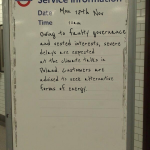 Service Information
Date Mon 18th Nov
Time 10am
Owing to faulty governance
and vested interests, severe
delays are expected
at the climate talks in
Poland. Customers are
advised to seek alternative
forms of energy.